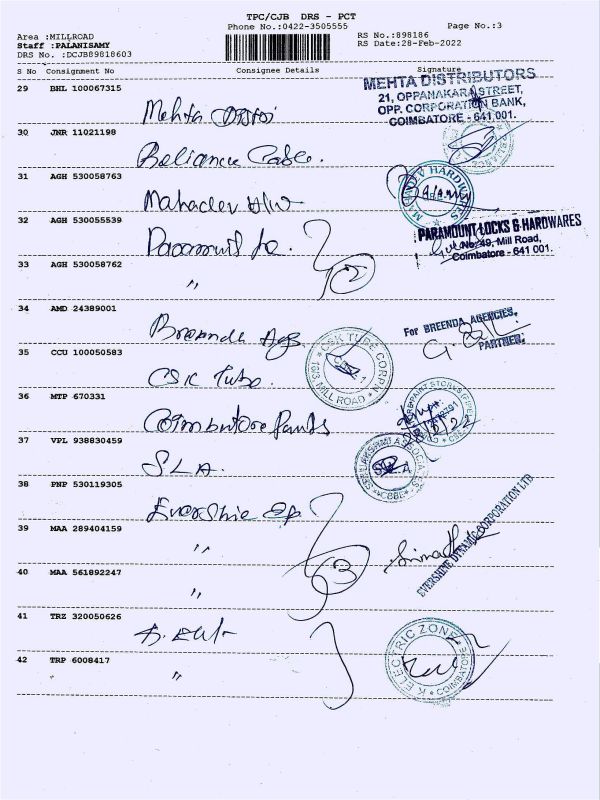 TPC/CJB DRS - PCT
Phone No.:0422-3505555 Page No.:3
Area :MILLROAD RS No.:898186
Staff :PALANISAMY RS Date:28-Feb-2022
DRS No. :DCJB89818603
S No Consignment No Consignee Details Signature
29 BHL 100067315
Mehta
MEHTA DISTRIBUTORS
21, OPPANAKARA STREET,
OPP. CORPORATION BANK,
COIMBATORE - 641 001.
30 JNR 11021198
Reliance Cable.
31 AGH 530058763
Mahadev H/w
HARDWARES
32 AGH 530055539
Paramount
PARAMOUNT LOCKS & HARDWARES
No: 49, Mill Road,
Coimbatore - 641 001.
33 AGH 530058762
〃
2
34 AMD 24389001
Breenda Ags
For BREENDA AGENCIES,
PARTNER.
35 CCU 100050583
CSK Tube.
CSK TUBE CORPN
* 163, MILL ROAD *
36 MTP 670331
Coimbatore Paints
37 VPL 938830459
SLA.
SLA
38 PNP 530119305
Evershine
39 MAA 289404159
〃
3
EVERSHINE DYNAMIC CORPORATION LTD
40 MAA 561892247
〃
41 TRZ 320050626
K ELECTRIC ZONE
42 TRP 6008417
〃